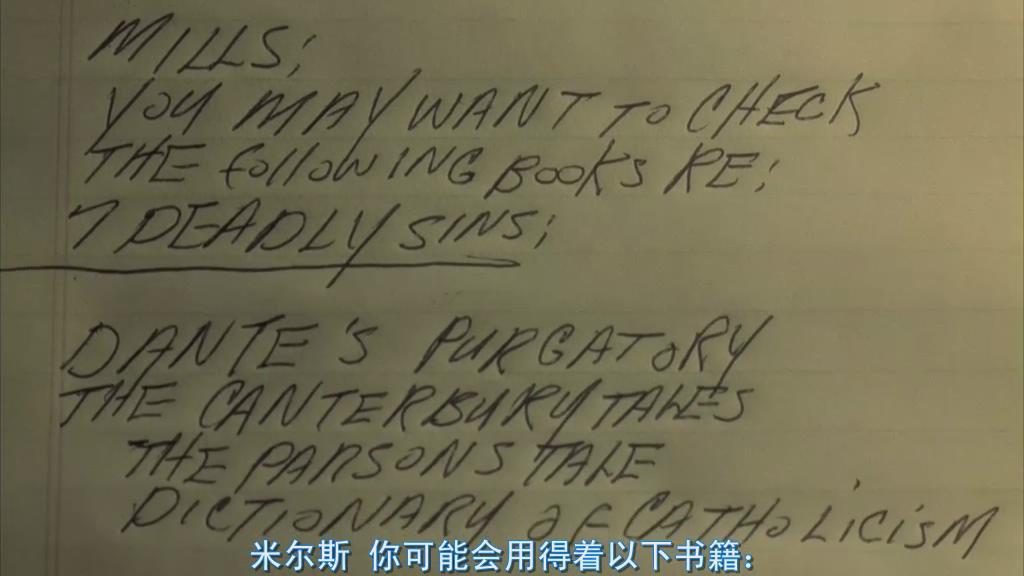 MILLS;
YOU MAY WANT TO CHECK
THE following BOOKS RE:
7 DEADLY SINS;
DANTE'S PURGATORY
THE CANTERBURY TALES
THE PARSONS TALE
DICTIONARY OF CATHOLICISM
米尔斯 你可能会用得着以下书籍：